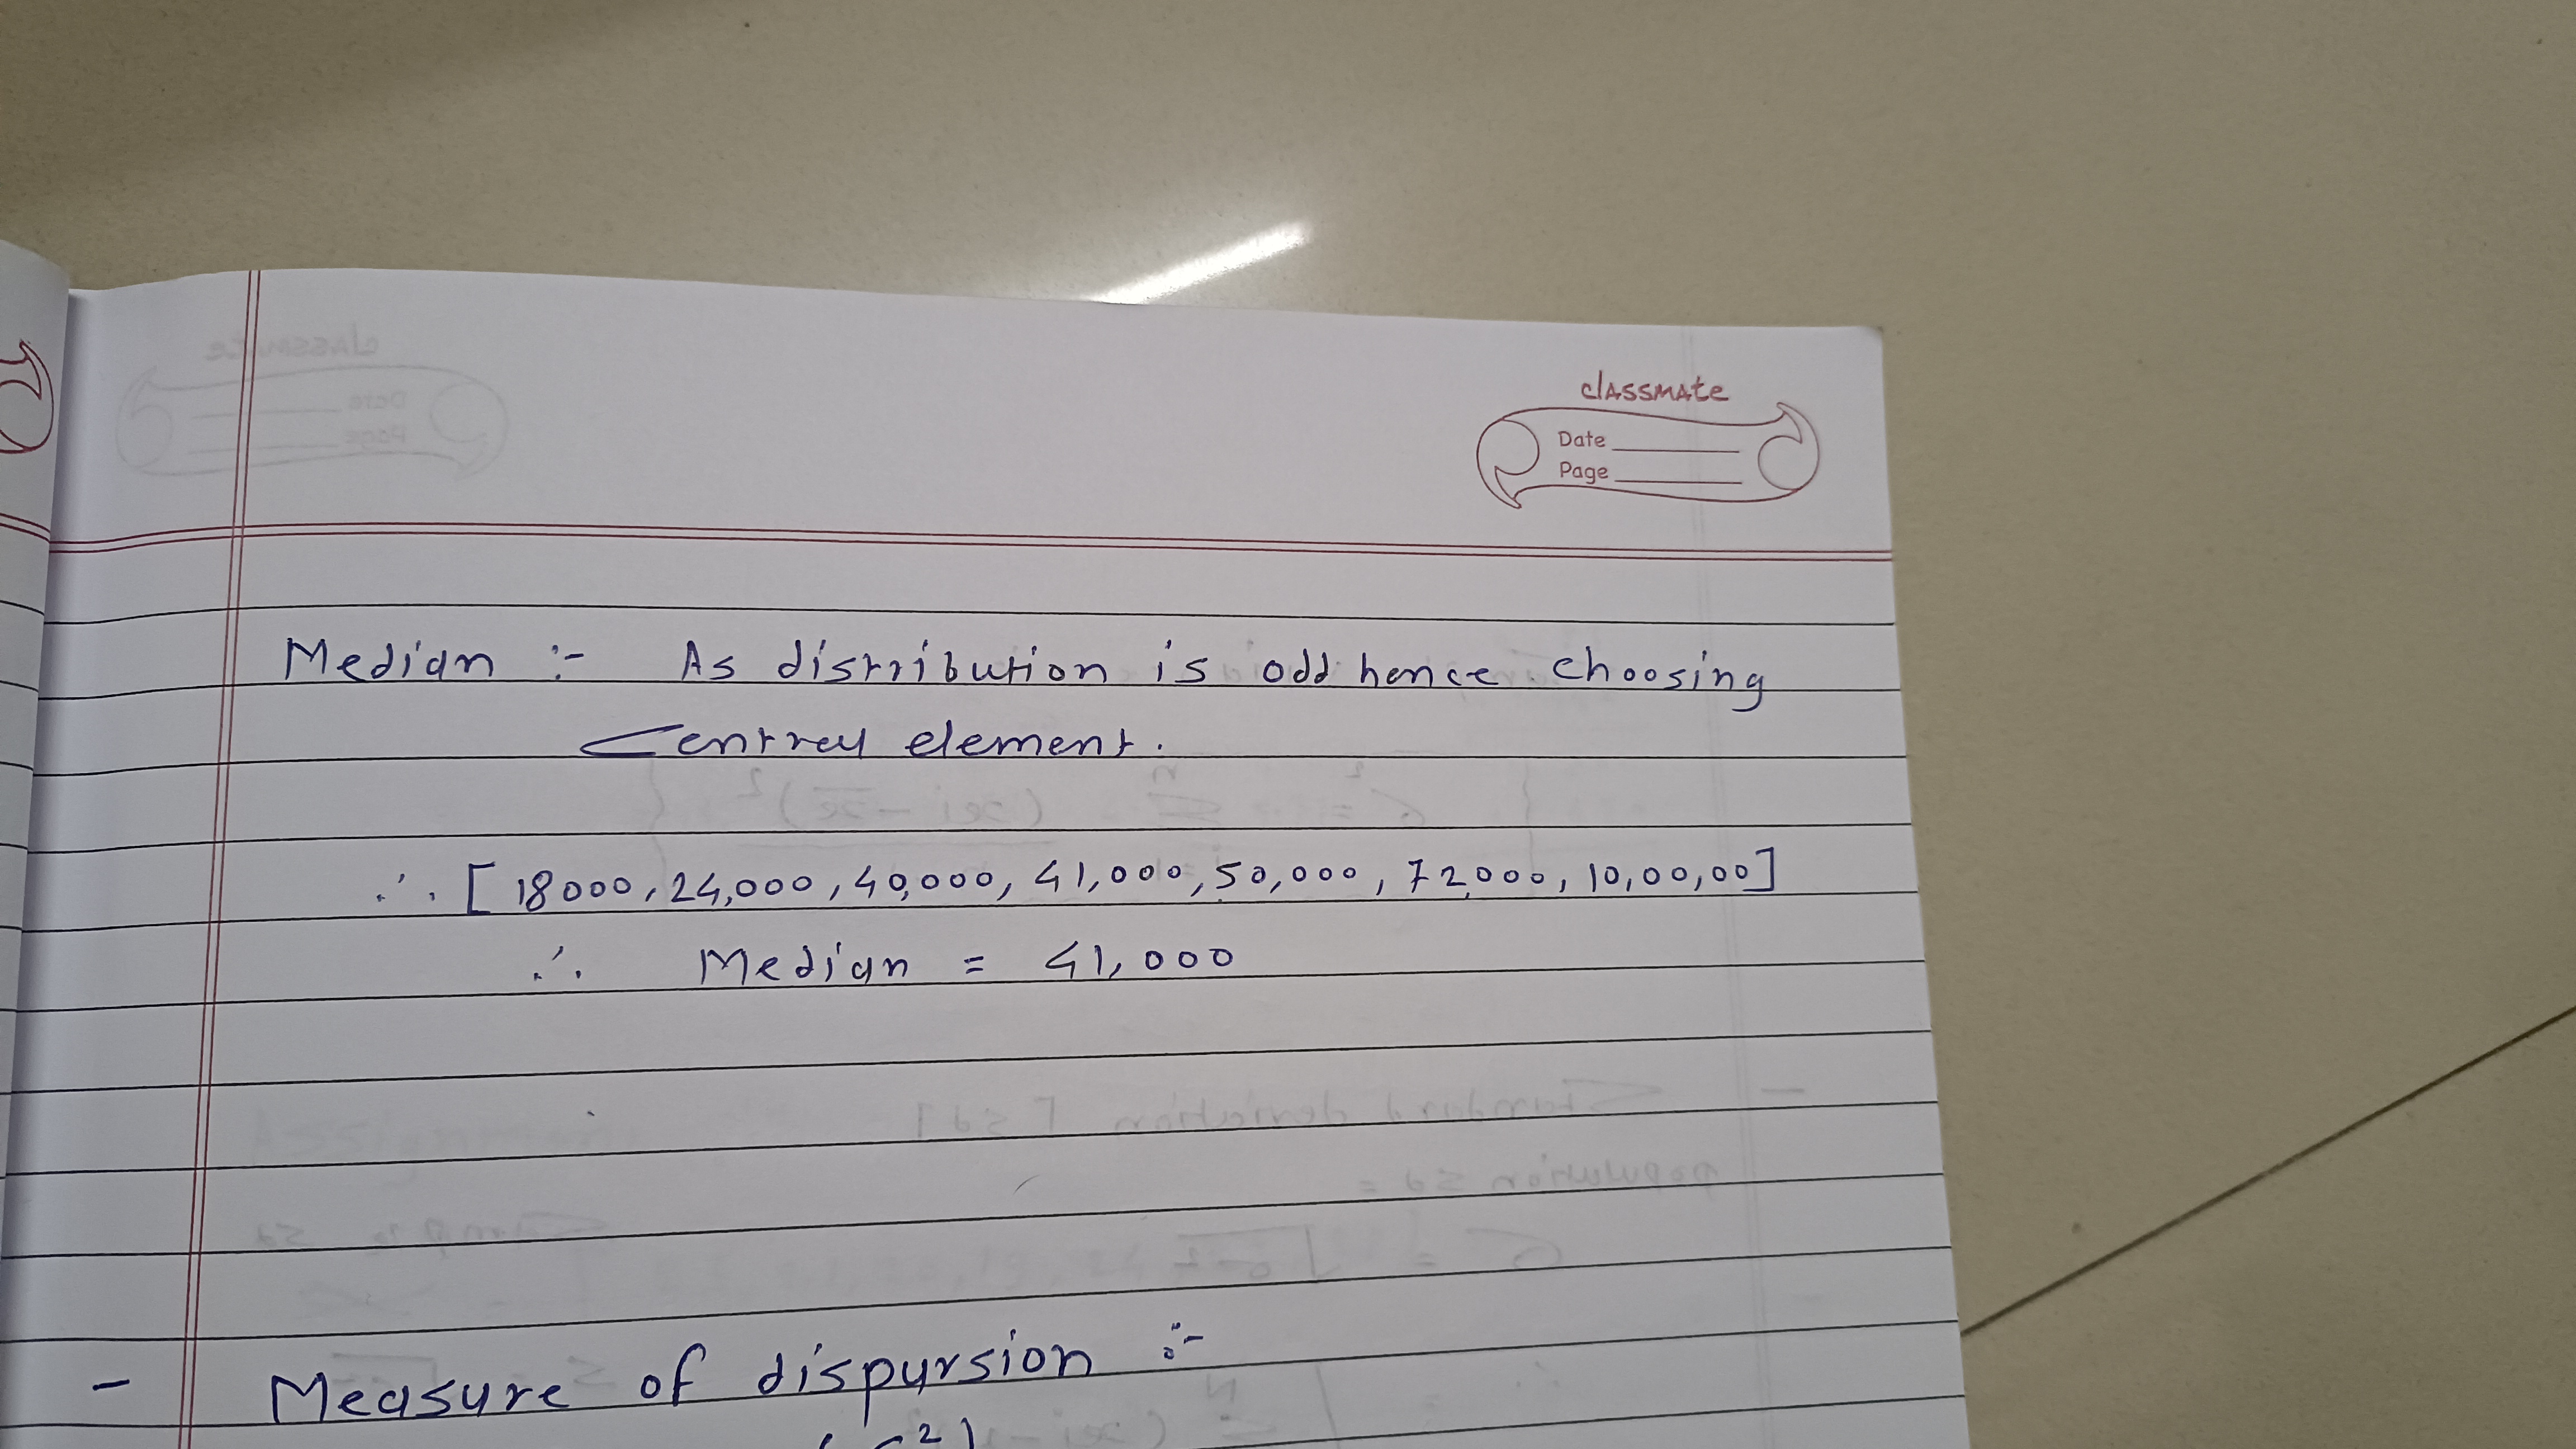 classmate
Date
Page
Median :- As distribution is odd hence choosing
Central element.
∴ [18000, 24,000, 40,000, 41,000, 50,000, 72,000, 10,00,00]
∴ Median = 41,000
- Measure of dispursion :-